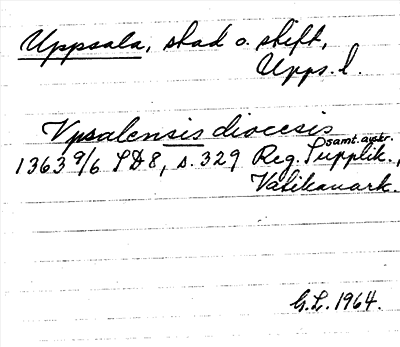 Uppsala, stad o. stift,
Upps. l.
Vpsalensis diocesis
samt. avskr.
1363 9/6 SD 8, s. 329 Reg. Supplik.,
Vatikanark.
G.L. 1964.